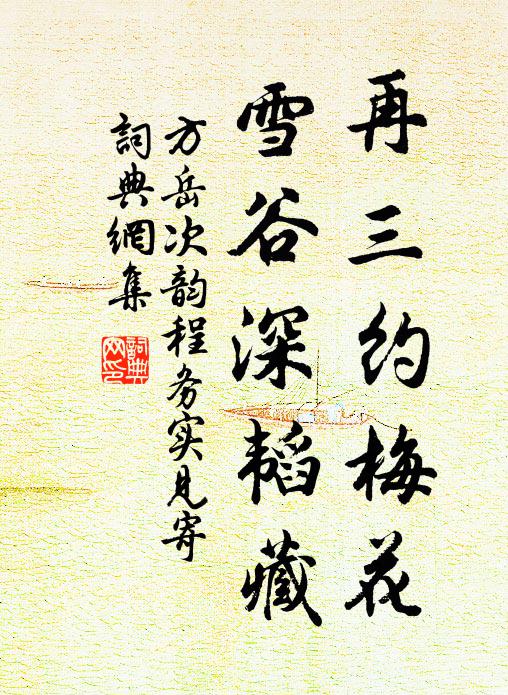 再三约梅花
雪谷深韬藏
方岳次韵程务实见寄
詞典網集
詞典网印